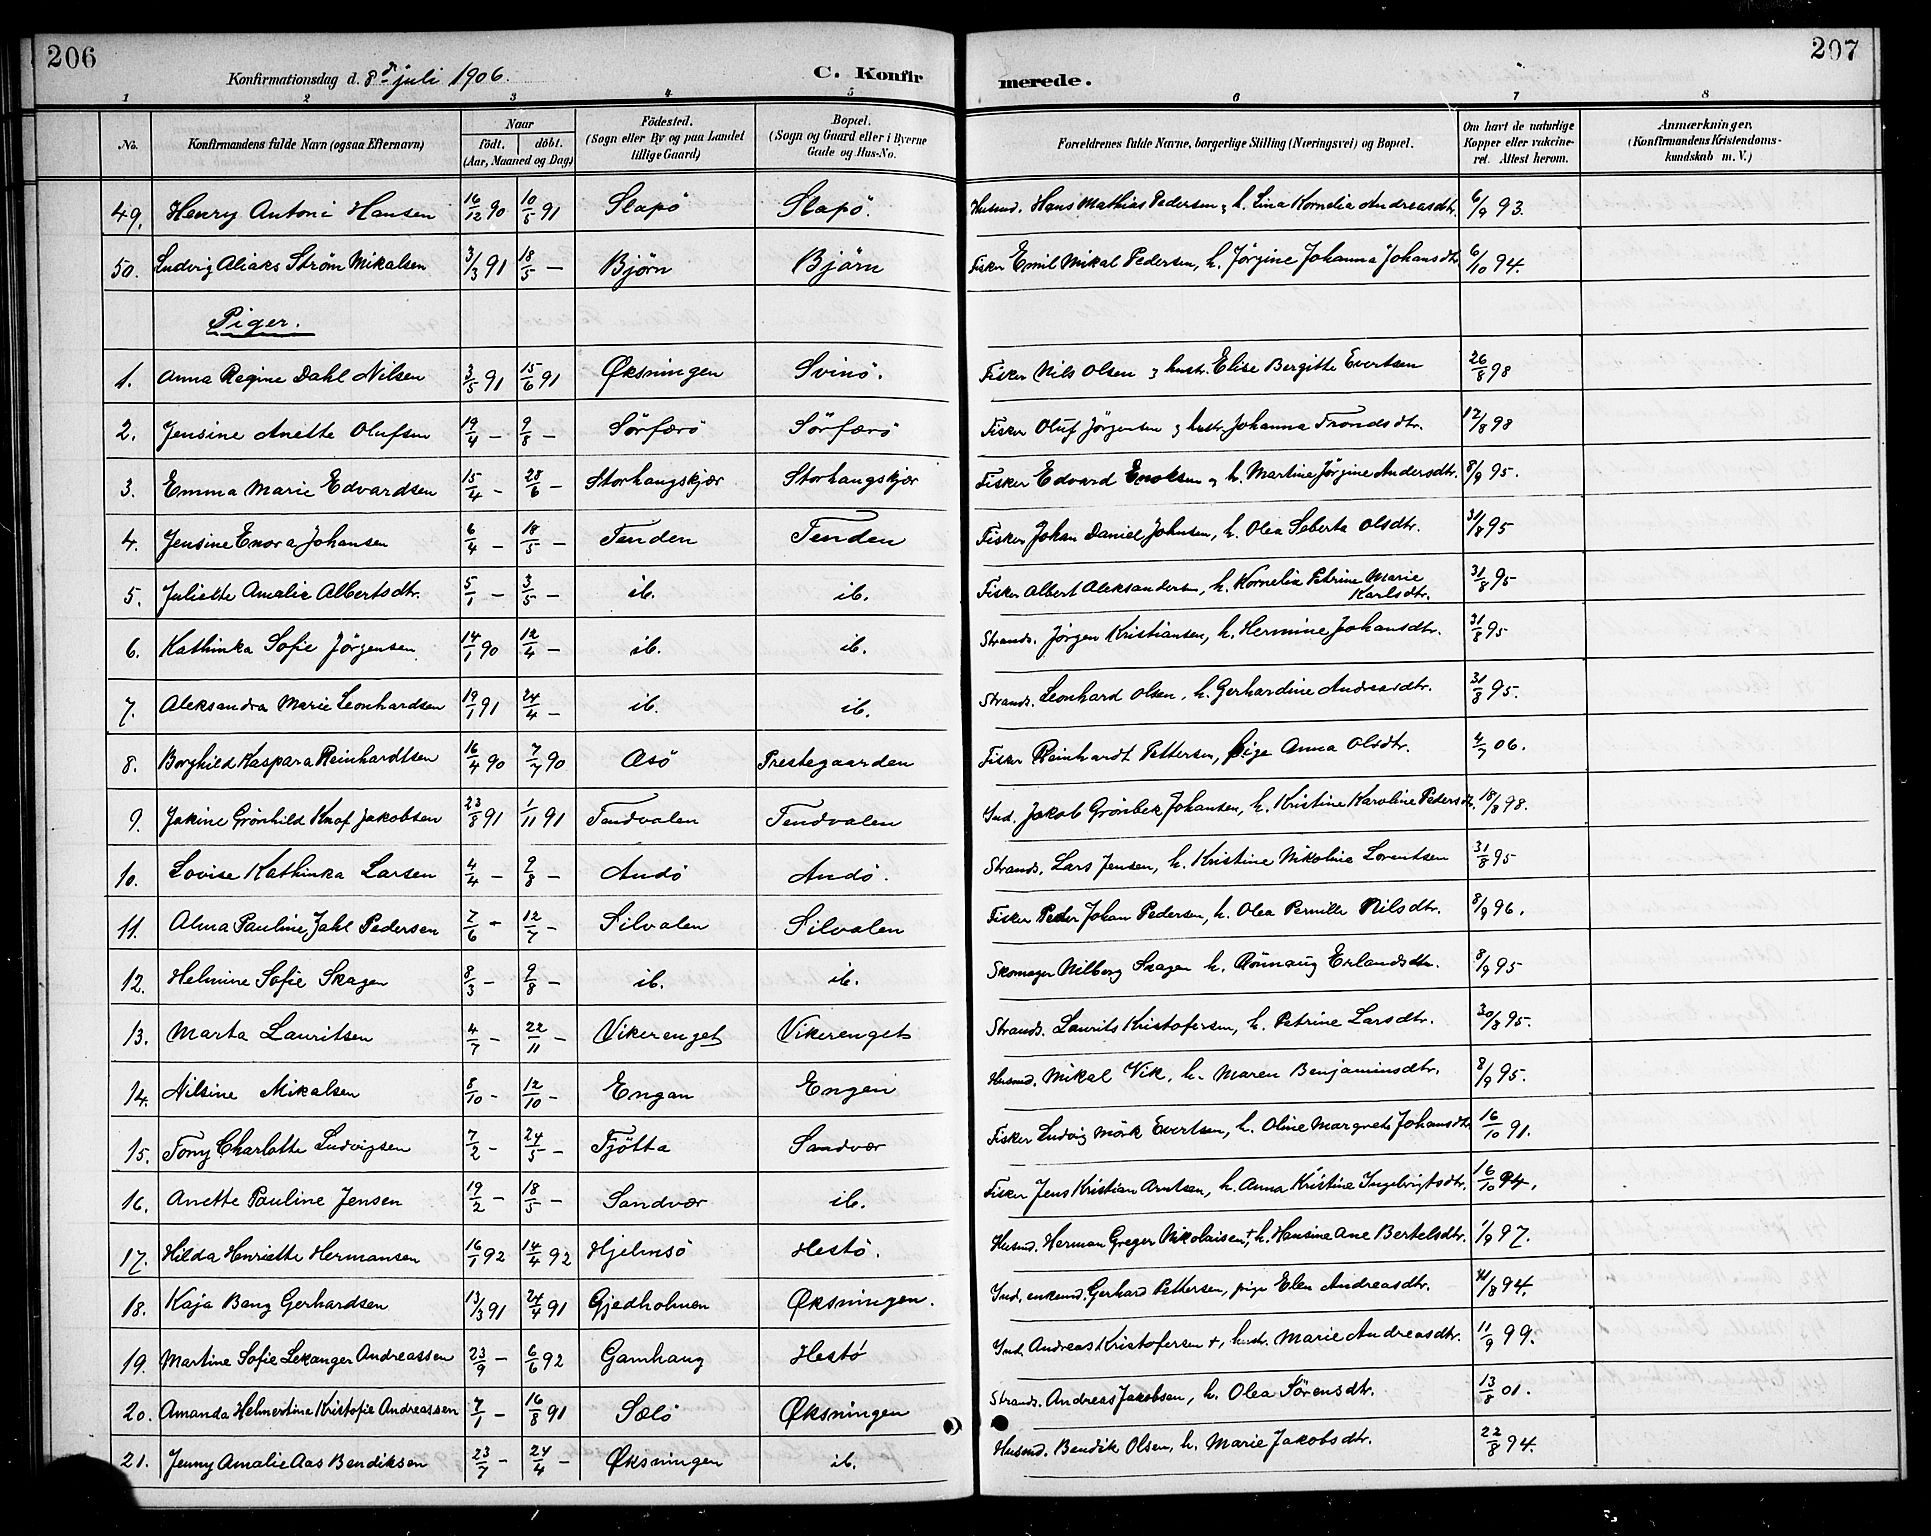 206
207
Konfirmationsdag d. 8de juli 1906.
C. Konfir
merede.
1 2 3 4 5 6 7 8
No. Konfirmandens fulde Navn (ogsaa Efternavn) Naar födt. döbt. (Aar, Maaned og Dag) Födested. (Sogn eller By og paa Landet tillige Gaard) Bopæl. (Sogn og Gaard eller i Byerne Gade og Hus-No. Forældrenes fulde Navne, borgerlige Stilling (Næringsvei) og Bopæl. Om havt de naturlige Kopper eller vakcineret. Attest herom. Anmærkninger, (Konfirmandens Kristendomskundskab m. V.)
49. Henry Antoni Hansen 16/12 90 10/5 91 Slapö Slapö. Husmd. Hans Mathias Pedersen, h. Lina Kornelia Andreasdtr. 6/9 93.
50. Ludvig Aliaks Strøm Mikalsen 3/3 91 18/5 — Bjørn Bjørn Fisker Emil Mikal Pedersen, h. Jørgine Johanna Johansdtr 6/10 94.
Piger.
1. Anna Regine Dahl Nilsen 3/5 91 15/6 91 Øksningen Svinö. Fisker Nils Olsen & hustr. Elise Bergitte Evertsen 26/8 98
2. Jensine Anette Olufsen 19/4 — 9/8 — Sörfærö Sörfærö Fisker Oluf Jørgensen & hustr. Johanna Trondsdtr. 12/8 98
3. Emma Marie Edvardsen 15/4 — 28/6 — Storhaugskjær Storhaugskjær Fisker Edvard Enoksen & h. Martine Jörgine Andersdtr. 8/9 95.
4. Jensine Enora Johansen 6/4 — 18/5 — Tenden Tenden Fisker Johan Daniel Johnsen, h. Olea Seberta Olsdtr. 31/8 95
5. Juliette Amalie Albertsdtr. 5/1 — 3/5 — ib. ib. Fisker Albert Aleksandersen, h. Kornelia Petrine Marie Karlsdtr. 31/8 95
6. Kathinka Sofie Jörgensen 14/1 90 12/4 — ib. ib. Strands. Jörgen Kristiansen, h. Hermine Johansdtr. 31/8 95
7. Aleksandra Marie Leonhardsen 19/1 91 24/4 — ib. ib. Strands. Leonhard Olsen, h. Gerhardine Andreasdtr. 31/8 95.
8. Borghild Kaspara Reinhardtsen 16/4 90 7/7 90 Asö Prestegaarden Fisker Reinhardt Pettersen, Pige Anna Olsdtr. 4/7 06.
9. Jakine Grönhild Knof Jakobsen 23/8 91 1/11 91 Tendvalen Tendvalen Ind. Jakob Grönbek Johansen, h. Kristine Karoline Pedersdtr. 18/8 98.
10. Lovise Kathinka Larsen 4/4 — 9/8 — Andö Andö. Strands. Lars Jensen, h. Kristine Nikoline Lorentsen 31/8 95
11. Alma Pauline Jahl Pedersen 7/6 — 12/7 — Silvalen Silvalen Fisker Peder Johan Pedersen, h. Olea Pernille Nilsdtr. 8/9 96.
12. Helmine Sofie Skagen 8/3 — 9/8 — ib. ib. Skomager Nilberg Skagen h. Rönnaug Erlandsdtr. 8/9 95
13. Marta Lauritsen 4/7 — 22/11 — Vikerenget Vikerenget Strands. Laurits Kristofersen, h. Petrine Larsdtr. 30/8 95.
14. Nilsine Mikalsen 8/10 — 12/10 — Engan Engen Husmd. Mikal Vik, h. Maren Benjaminsdtr. 8/9 95.
15. Tony Charlotte Ludvigsen 7/2 — 24/5 — Tjötta Sandvær Fisker Ludvig Mörk Evertsen, h. Oline Margrete Johansdtr 16/10 91.
16. Anette Pauline Jensen 19/2 — 18/5 — Sandvær ib. Fisker Jens Kristian Arntsen, h. Anna Kristine Ingebrigtsdtr. 16/10 94.
17. Hilda Henriette Hermansen 16/1 92 14/4 92 Hjelmsö Hestö. Husmd. Herman Greger Nikolaisen +, h. Hansine Ane Bertelsdtr. 1/9 97.
18. Kaja Bang Gerhardsen 13/3 91 24/4 91 Gjedholmen Øksningen. Ind. enkemd. Gerhard Pettersen, pige Elen Andreasdtr. /8 94.
19. Martine Sofie Lekanger Andreassen 23/9 — 6/6 92 Gamhaug Hestö Ind. Andreas Kristofersen +, hustr. Marie Andreasdtr. 11/9 99.
20. Amanda Helmertine Kristofie Andreassen 7/1 — 16/8 91 Sælö Øksningen Strands. Andreas Jakobsen, h. Olea Sörensdtr. 13/8 01.
21. Jenny Amalie Aas Bendiksen 23/7 — 24/4 — Øksningen ib. Husmd. Bendik Olsen, h. Marie Jakobsdtr. 22/8 94.